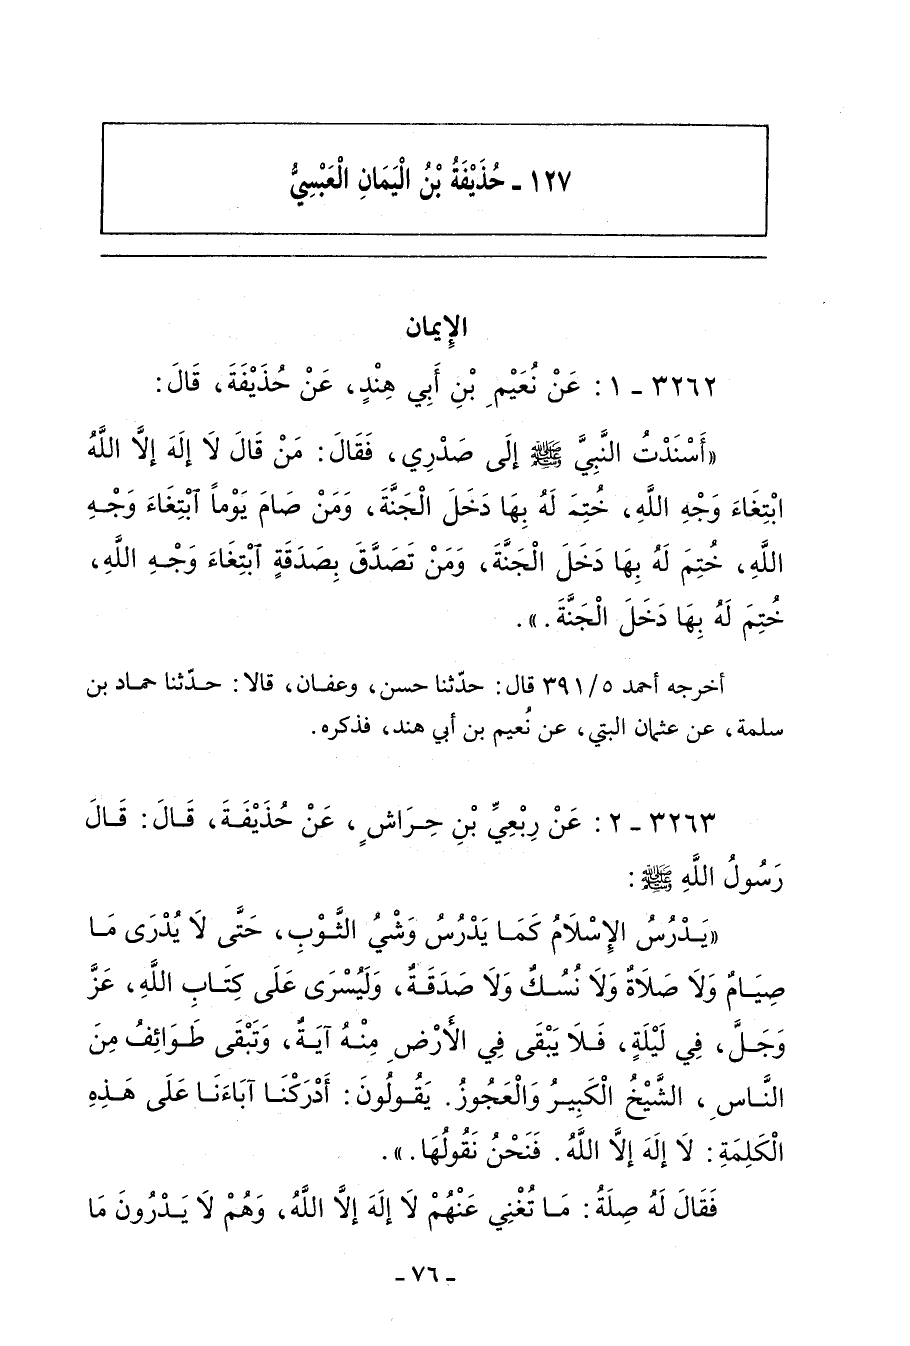 ١٢٧ - حُذَيْفَةُ بْنُ الْيَمَانِ الْعَبْسِيُّ
الإِيمان
٣٢٦٢ - ١ : عَنْ نُعَيْمِ بْنِ أَبِي هِنْدٍ، عَنْ حُذَيْفَةَ، قَالَ:
«أَسْنَدْتُ النَّبِيَّ ﷺ إِلَى صَدْرِي، فَقَالَ: مَنْ قَالَ لَا إِلَهَ إِلَّا اللَّهُ
ابْتِغَاءَ وَجْهِ اللَّهِ، خُتِمَ لَهُ بِهَا دَخَلَ الْجَنَّةَ، وَمَنْ صَامَ يَوْماً ٱبْتِغَاءَ وَجْهِ
اللَّهِ، خُتِمَ لَهُ بِهَا دَخَلَ الْجَنَّةَ، وَمَنْ تَصَدَّقَ بِصَدَقَةٍ ٱبْتِغَاءَ وَجْهِ اللَّهِ،
خُتِمَ لَهُ بِهَا دَخَلَ الْجَنَّةَ.».
أخرجه أحمد ٣٩١/٥ قال: حدّثنا حسن، وعفان، قالا: حدّثنا حماد بن
سلمة، عن عثمان البتي، عن نُعيم بن أبي هند، فذكره.
٣٢٦٣ - ٢ : عَنْ رِبْعِيِّ بْنِ حِرَاشٍ، عَنْ حُذَيْفَةَ، قَالَ: قَالَ
رَسُولُ اللَّهِ ﷺ :
«يَدْرُسُ الإِسْلَامُ كَمَا يَدْرُسُ وَشْيُ الثَّوْبِ، حَتَّى لَا يُدْرَى مَا
صِيَامٌ وَلَا صَلَاةٌ وَلَا نُسُكٌ وَلَا صَدَقَةٌ، وَلَيُسْرَى عَلَى كِتَابِ اللَّهِ، عَزَّ
وَجَلَّ، فِي لَيْلَةٍ، فَلَا يَبْقَى فِي الأَرْضِ مِنْهُ آيَةٌ، وَتَبْقَى طَوَائِفُ مِنَ
النَّاسِ، الشَّيْخُ الْكَبِيرُ وَالْعَجُوزُ. يَقُولُونَ: أَدْرَكْنَا آبَاءَنَا عَلَى هَذِهِ
الْكَلِمَةِ: لَا إِلَهَ إِلَّا اللَّهُ. فَنَحْنُ نَقُولُهَا.».
فَقَالَ لَهُ صِلَةُ: مَا تُغْنِي عَنْهُمْ لَا إِلَهَ إِلَّا اللَّهُ، وَهُمْ لَا يَدْرُونَ مَا
- ٧٦ -